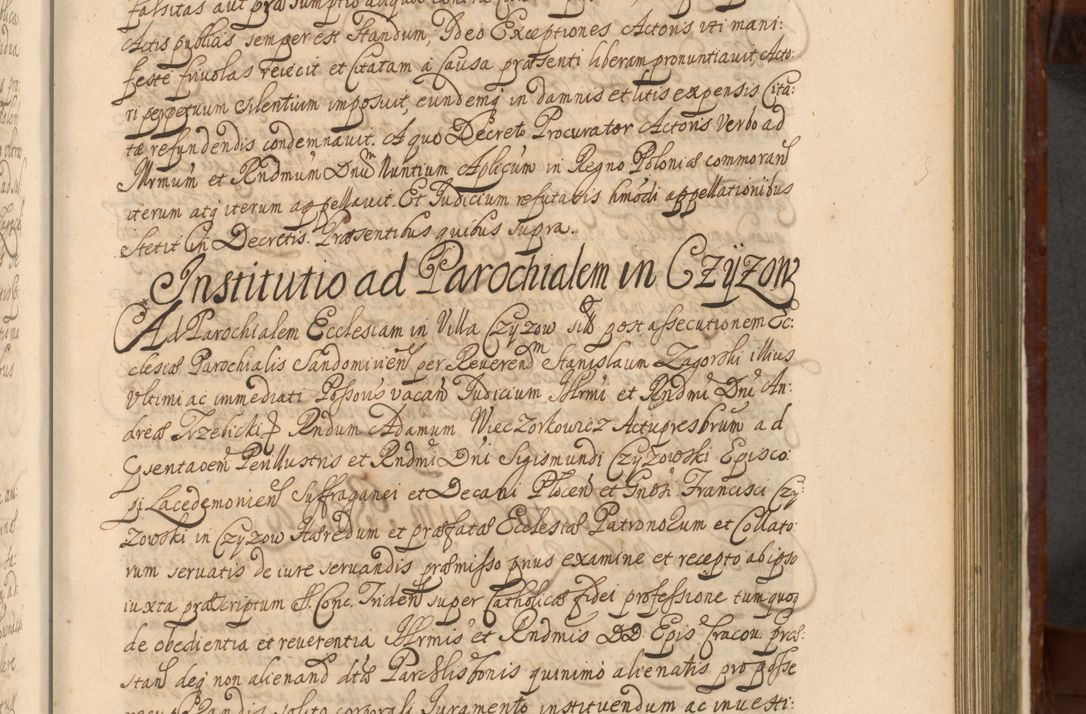 falsitas aut præsumptio aliqua contra
Actis publicis semper est standum, Ideo Exceptiones Actoris vti mani:
feste friuolas reiecit et Citatam à Causa præsenti liberam pronuntiauit, Acto:
ri perpetuum silentium imposuit, eundemq in damnis et litis expensis Cita:
tæ refundendis condemnauit. A quo Decreto Procurator Actoris Verbo ad
Illrmum et Rndmum Dnum Nuntium Aplicum in Regno Poloniæ commoran
iterum atq iterum appellauit. Et Iudicium refutatis hmodi appellationibus
stetit in Decretis. Præsentibus quibus supra.
Institutio ad Parochialem in Czÿzow
Ad Parochialem Ecclesiam in Villa Czyzow sitt post assecutionem Ec:
clesiæ Parochialis Sandomirien per Reverendm Stanislaum Zagorski illius
Vltimi ac immediati Possoris vacan Iudicium Illrmi et Rndmi Dni An:
dreæ Trzebicki Rndum Adamum Wieczorkowicz Actupresbrum ad
Psentaoem Perillustris et Rndmi Dni Sigismundi Czyzowski Episco:
pi Lacedemonien Suffraganei et Decani Plocen et Gnosi Francisci Czy:
zowski in Czyzow Hæredum et præfatæ Ecclesiæ Patronorum et Collato:
rum seruatis de iure seruandis præmisso prius examine et recepto ab ipso
iuxta præscriptum S. Conc. Triden super Catholicæ fidei professione tum quoq
de obedientia et reuerentia Illrmis et Rndmis DD. Epis Cracou præ:
stan deq non alienand dtis Parchlis bonis quinimò alienatis pro posse
recuperandis solito corporali Iuramento instituendum ac inuesti: